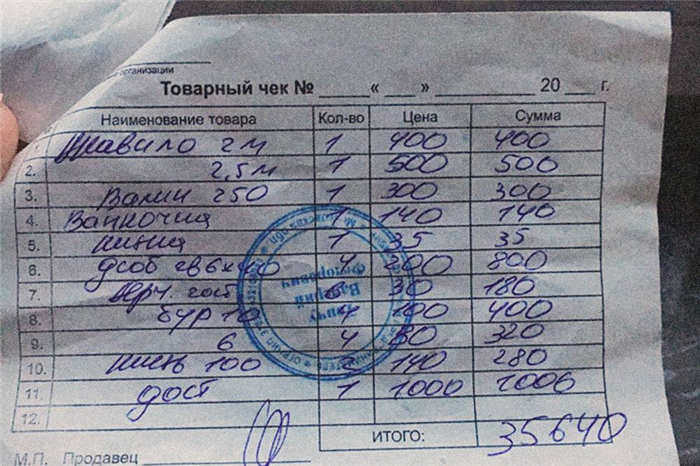 организации
Товарный чек № « » 20 г.
Наименование товара Кол-во Цена Сумма
1. Правило 2 м 1 400 400
2. 2,5 м 1 500 500
3. Валик 250 1 300 300
4. 1 140 140
5. 1 35 35
6. 4 200 800
7. 30 180
8. бур 10 4 100 400
9. 6 4 80 320
10. кисть 100 2 140 280
11. дост 1 1000 1000
12.
ИТОГО: 35640
М.П. Продавец